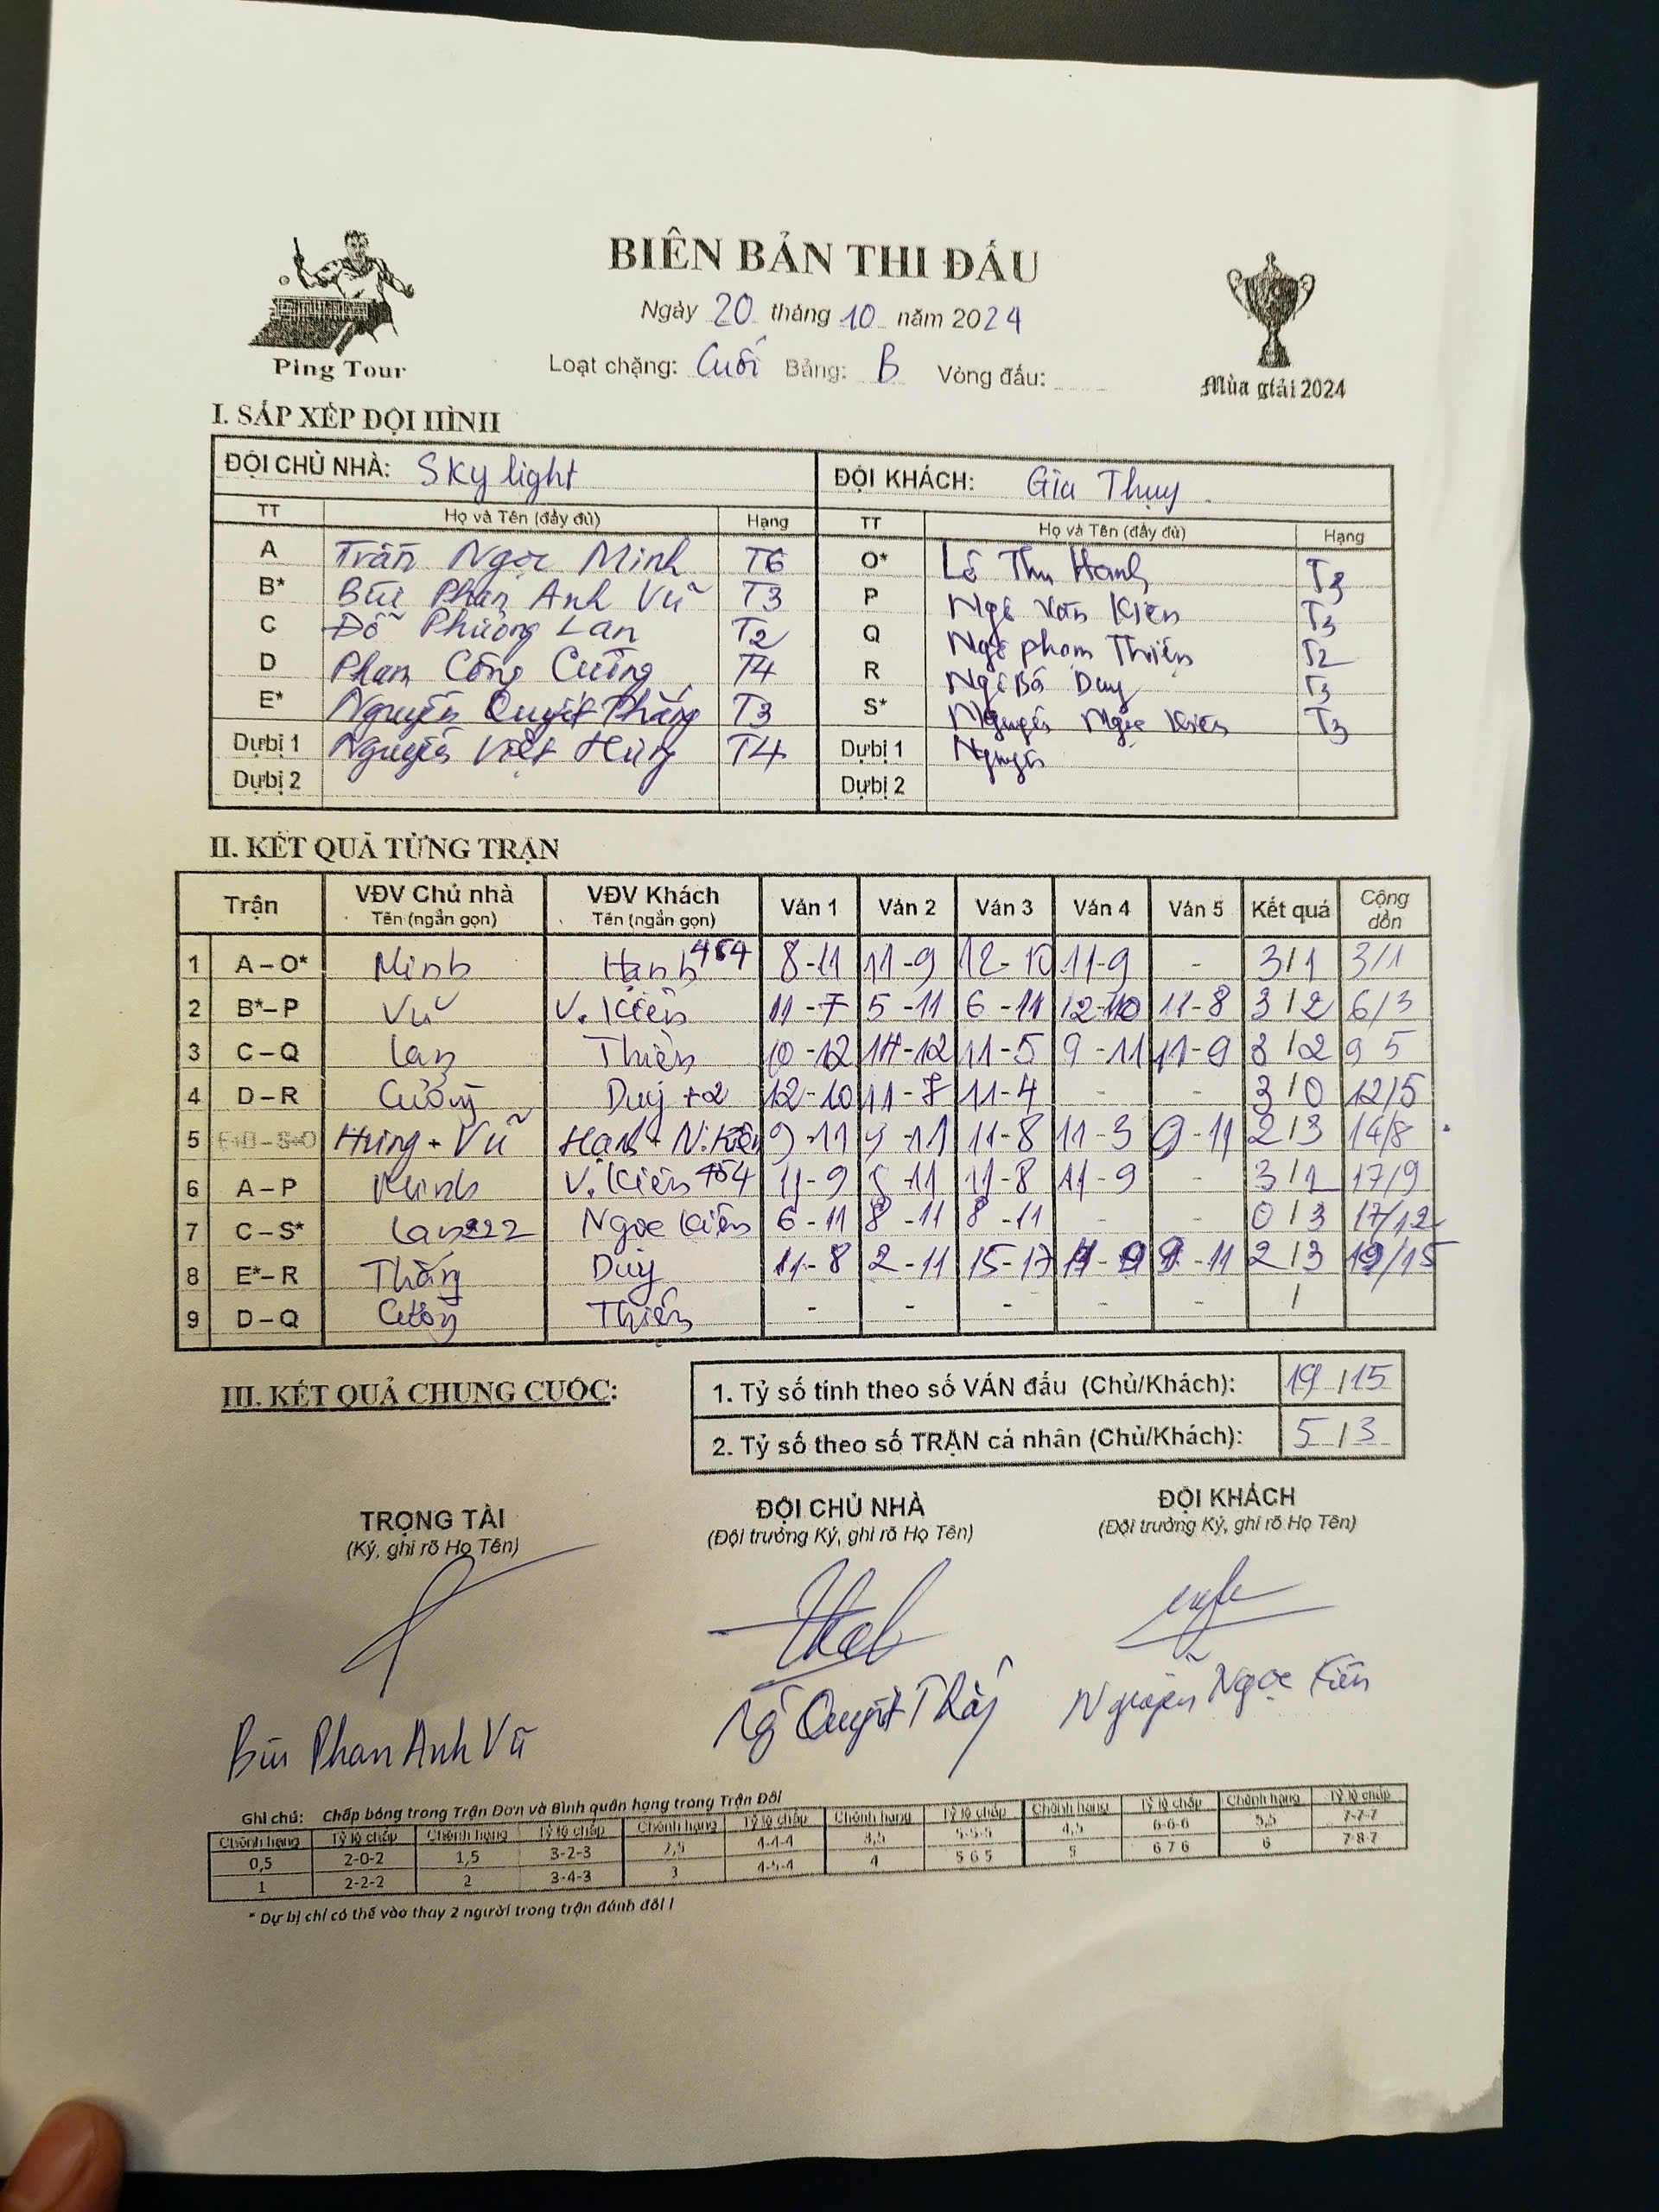 BIÊN BẢN THI ĐẤU
Ngày 20 tháng 10 năm 2024
Loạt chặng: Cuối Bảng: B Vòng đấu:
Ping Tour
Mùa giải 2024
I. SẮP XẾP ĐỘI HÌNH
ĐỘI CHỦ NHÀ: Sky light ĐỘI KHÁCH: Gia Thụy
TT Họ và Tên (đầy đủ) Hạng TT Họ và Tên (đầy đủ) Hạng
A Trần Ngọc Minh T6 O* Lê Thu Hạnh
B* Bùi Phan Anh Vũ T3 P Ngô Văn Kiên T3
C Đỗ Phương Lan T2 Q Ngô Phạm Thiện T2
D Phan Công Cường T4 R Ngô Bá Duy T3
E* Nguyễn Quyết Thắng T3 S* Nguyễn Ngọc Kiên T3
Dự bị 1 Nguyễn Việt Hùng T4 Dự bị 1 Nguyễn
Dự bị 2 Dự bị 2
II. KẾT QUẢ TỪNG TRẬN
Trận VĐV Chủ nhà Tên (ngắn gọn) VĐV Khách Tên (ngắn gọn) Ván 1 Ván 2 Ván 3 Ván 4 Ván 5 Kết quả Cộng dồn
1 A – O* Minh Hạnh 454 8-11 11-9 12-10 11-9 - 3/1 3/1
2 B* – P Vũ V. Kiên 11-7 5-11 6-11 12-10 11-8 3/2 6/3
3 C – Q Lan Thiện 10-12 14-12 11-5 9-11 11-9 3/2 9 5
4 D – R Cường Duy +2 12-10 11-7 11-4 - - 3/0 12/5
5 E+B – S+O Hùng + Vũ Hạnh + N. Kiên 9-11 9-11 11-8 11-3 9-11 2/3 14/8
6 A – P Minh V. Kiên 454 11-9 5-11 11-8 11-9 - 3/1 17/9
7 C – S* Lan 222 Ngọc Kiên 6-11 8-11 8-11 - - 0/3 17/12
8 E* – R Thắng Duy 11-8 2-11 15-17 11-9 9-11 2/3 19/15
9 D – Q Cường Thiện - - - - - /
III. KẾT QUẢ CHUNG CUỘC:
1. Tỷ số tính theo số VÁN đấu (Chủ/Khách): 19/15
2. Tỷ số theo số TRẬN cá nhân (Chủ/Khách): 5/3
TRỌNG TÀI ĐỘI CHỦ NHÀ ĐỘI KHÁCH
(Ký, ghi rõ Họ Tên) (Đội trưởng Ký, ghi rõ Họ Tên) (Đội trưởng Ký, ghi rõ Họ Tên)
Bùi Phan Anh Vũ Ng Quyết Thắng Nguyễn Ngọc Kiên
Ghi chú: Chấp bóng trong Trận Đơn và Bình quân hạng trong Trận Đôi
Chênh hạng Tỷ lệ chấp Chênh hạng Tỷ lệ chấp Chênh hạng Tỷ lệ chấp Chênh hạng Tỷ lệ chấp Chênh hạng Tỷ lệ chấp Chênh hạng Tỷ lệ chấp
0,5 2-0-2 1,5 3-2-3 2,5 4-4-4 3,5 5-5-5 4,5 6-6-6 5,5 7-7-7
1 2-2-2 2 3-4-3 3 4-5-4 4 5 6 5 5 6 7 6 6 7-8-7
* Dự bị chỉ có thể vào thay 2 người trong trận đánh đôi !